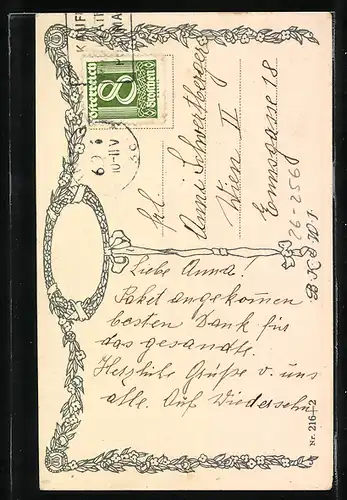 KAUF
Österreich
8
Groschen
10-11 V
Frl.
Anni Schwertberger
Wien II
Ennsgasse 18
26-256
B.K.W.I.
Liebe Anna!
Paket angekom̄en
besten Dank für
das gesandte.
Herzliche Grüße v. uns
alle. Auf Wiedersehn
Nr. 216-2